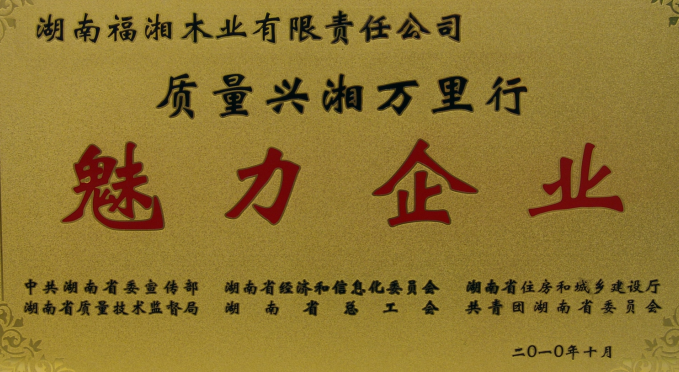 湖南福湘木业有限责任公司
质量兴湘万里行
魅力企业
中共湖南省委宣传部 湖南省经济和信息化委员会 湖南省住房和城乡建设厅
湖南省质量技术监督局 湖南省总工会 共青团湖南省委员会
二0一0年十月